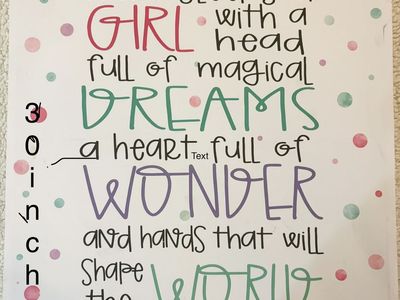 GIRL with a
head
full of magical
DREAMS
a heart full of
Text
WONDER
and hands that will
shape
the WORLD
30inch